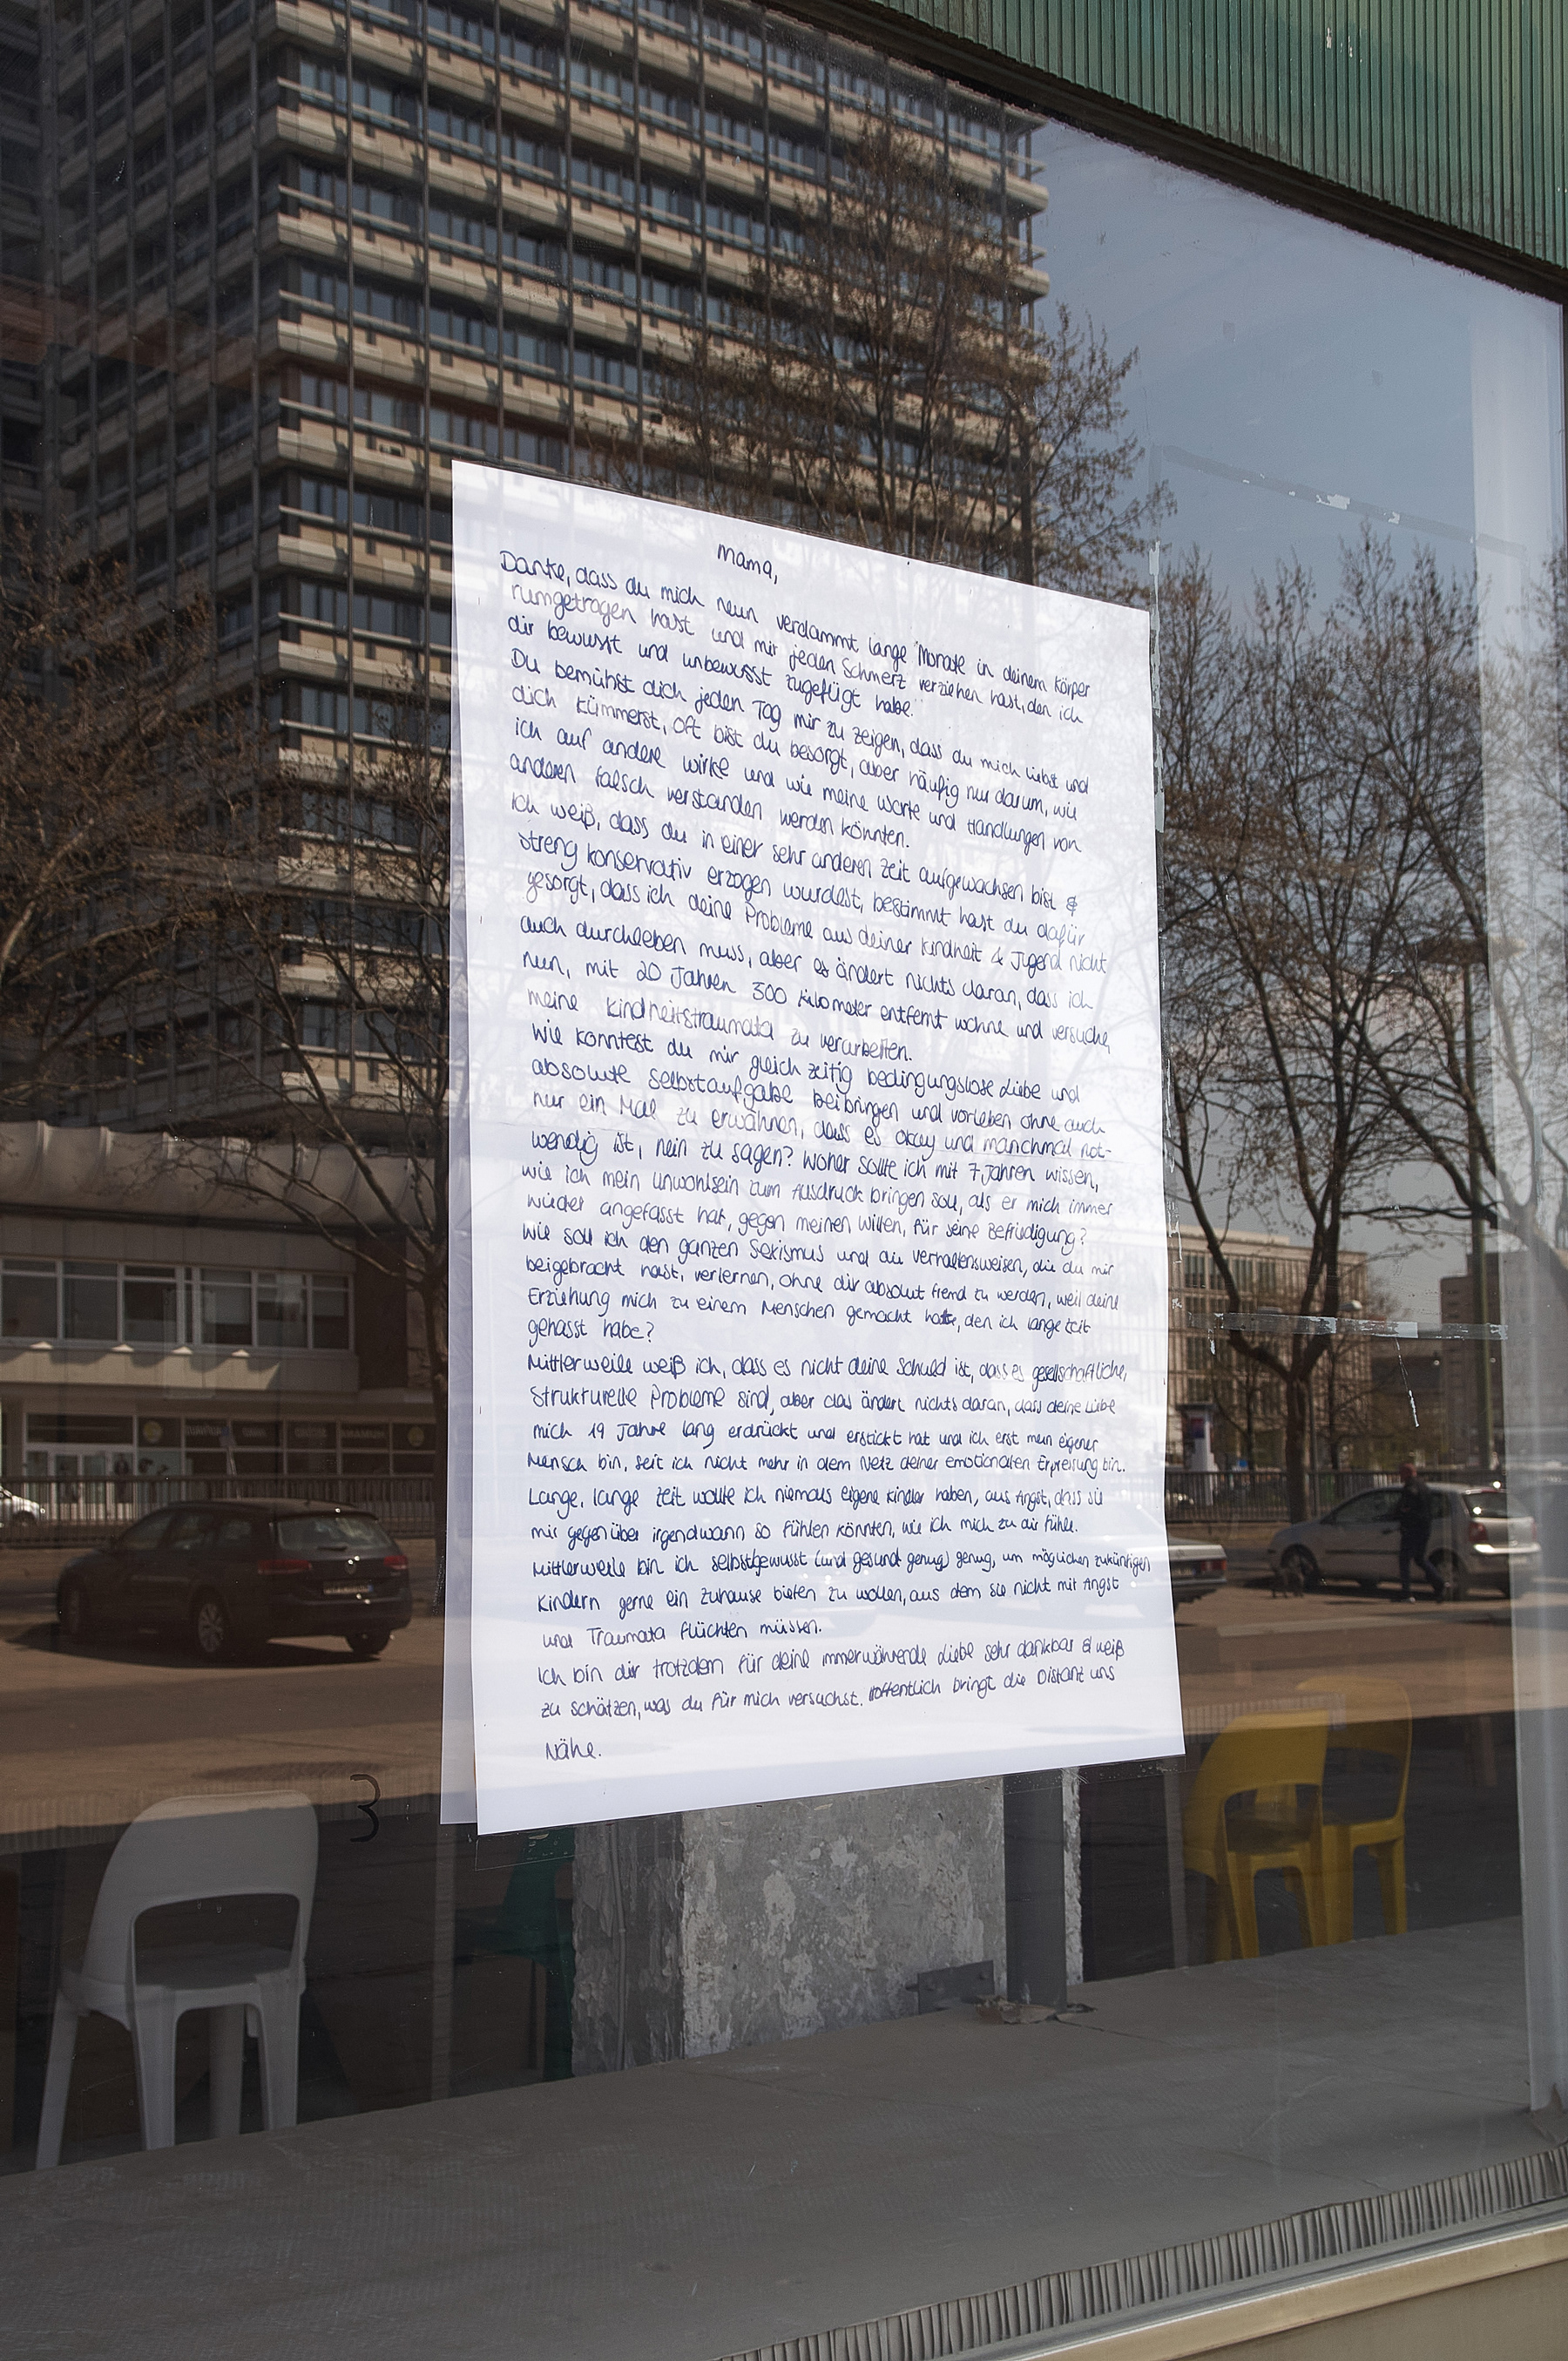 Mama,
Danke, dass du mich neun verdammt lange Monate in deinem Körper
rumgetragen hast und mir jeden Schmerz verziehen hast, den ich
dir bewusst und unbewusst zugefügt habe.
Du bemühst dich jeden Tag mir zu zeigen, dass du mich liebst und
dich kümmerst, oft bist du besorgt, aber häufig nur darum, wie
ich auf andere wirke und wie meine Worte und Handlungen von
anderen falsch verstanden werden könnten.
Ich weiß, dass du in einer sehr anderen Zeit aufgewachsen bist &
streng konservativ erzogen wurdest, bestimmt hast du dafür
gesorgt, dass ich deine Probleme aus deiner Kindheit & Jugend nicht
auch durchleben muss, aber es ändert nichts daran, dass ich
nun, mit 20 Jahren 300 Kilometer entfernt wohne und versuche,
meine Kindheitstraumata zu verarbeiten.
Wie konntest du mir gleichzeitig bedingungslose Liebe und
absolute Selbstaufgabe beibringen und vorleben ohne auch
nur ein Mal zu erwähnen, dass es okay und manchmal not-
wendig ist, nein zu sagen? Woher sollte ich mit 7 Jahren wissen,
wie ich mein Unwohlsein zum Ausdruck bringen soll, als er mich immer
wieder angefasst hat, gegen meinen Willen, für seine Befriedigung?
Wie soll ich den ganzen Sexismus und die Verhaltensweisen, die du mir
beigebracht hast, verlernen, ohne dir absolut fremd zu werden, weil deine
Erziehung mich zu einem Menschen gemacht hatte, den ich lange Zeit
gehasst habe?
Mittlerweile weiß ich, dass es nicht deine Schuld ist, dass es gesellschaftliche,
strukturelle Probleme sind, aber das ändert nichts daran, dass deine Liebe
mich 19 Jahre lang erdrückt und erstickt hat und ich erst mein eigener
Mensch bin, seit ich nicht mehr in dem Netz deiner emotionalen Erpressung bin.
Lange, lange Zeit wollte ich niemals eigene Kinder haben, aus Angst, dass sie
mir gegenüber irgendwann so fühlen könnten, wie ich mich zu dir fühle.
Mittlerweile bin ich selbstbewusst (und gesund genug) genug, um möglichen zukünftigen
Kindern gerne ein Zuhause bieten zu wollen, aus dem sie nicht mit Angst
und Traumata flüchten müssen.
Ich bin dir trotzdem für deine immerwährende Liebe sehr dankbar & weiß
zu schätzen, was du für mich versuchst. Hoffentlich bringt die Distanz uns
Nähe.
3